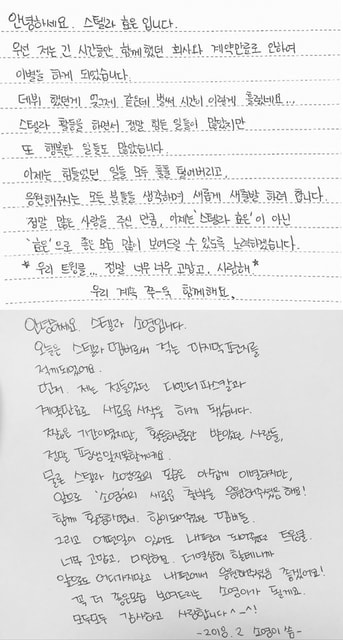 안녕하세요. 스텔라 효은 입니다.
우선 저는 긴 시간동안 함께했던 회사와 계약만료로 인하여
이별을 하게 되었습니다.
데뷔 했던게 엊그제 같은데 벌써 시간이 이렇게 흘렀네요...
스텔라 활동을 하면서 정말 힘든 일들이 많았지만
또 행복한 일들도 많았습니다.
이제는 힘들었던 일들 모두 훌훌 털어버리고,
응원해주시는 모든 분들을 생각하며 새롭게 새출발 하려 합니다.
정말 많은 사랑을 주신 만큼, 이제는 '스텔라 효은'이 아닌
'효은'으로 좋은 모습 많이 보여드릴 수 있도록 노력하겠습니다.
* 우리 트윙클... 정말 너무너무 고맙고, 사랑해*
우리 계속 쭈-욱 함께해요.
안녕하세요. 스텔라 소영입니다.
오늘은 스텔라 멤버로써 적는 마지막 편지를
적게되었어요.
먼저. 저는 정들었던 디엔터파스칼과
계약만료로 새로운 시작을 하게 됐습니다.
짧은 기간이였지만, 활동하는동안 받았던 사랑들,
정말 평생 잊지못할거예요.
물론 스텔라 소영으로의 모습은 아쉽게 이별하지만,
앞으로 '소영'이의 새로운 출발을 응원해주셨음 해요!
함께 활동하면서. 힘이되어줬던 멤버들.
그리고 어떤일이 있어도 내편이 되어줬던 트윙클.
너무 고맙고, 미안해요. 더열심히 할테니까
앞으로도 어디가지말고 내편에서 응원해줬음 좋겠어요!
꼭 더 좋은모습 보여드리는 소영이가 될게요.
모두모두 감사하고 사랑합니다^-^!
-2018. 2 소영이 씀-